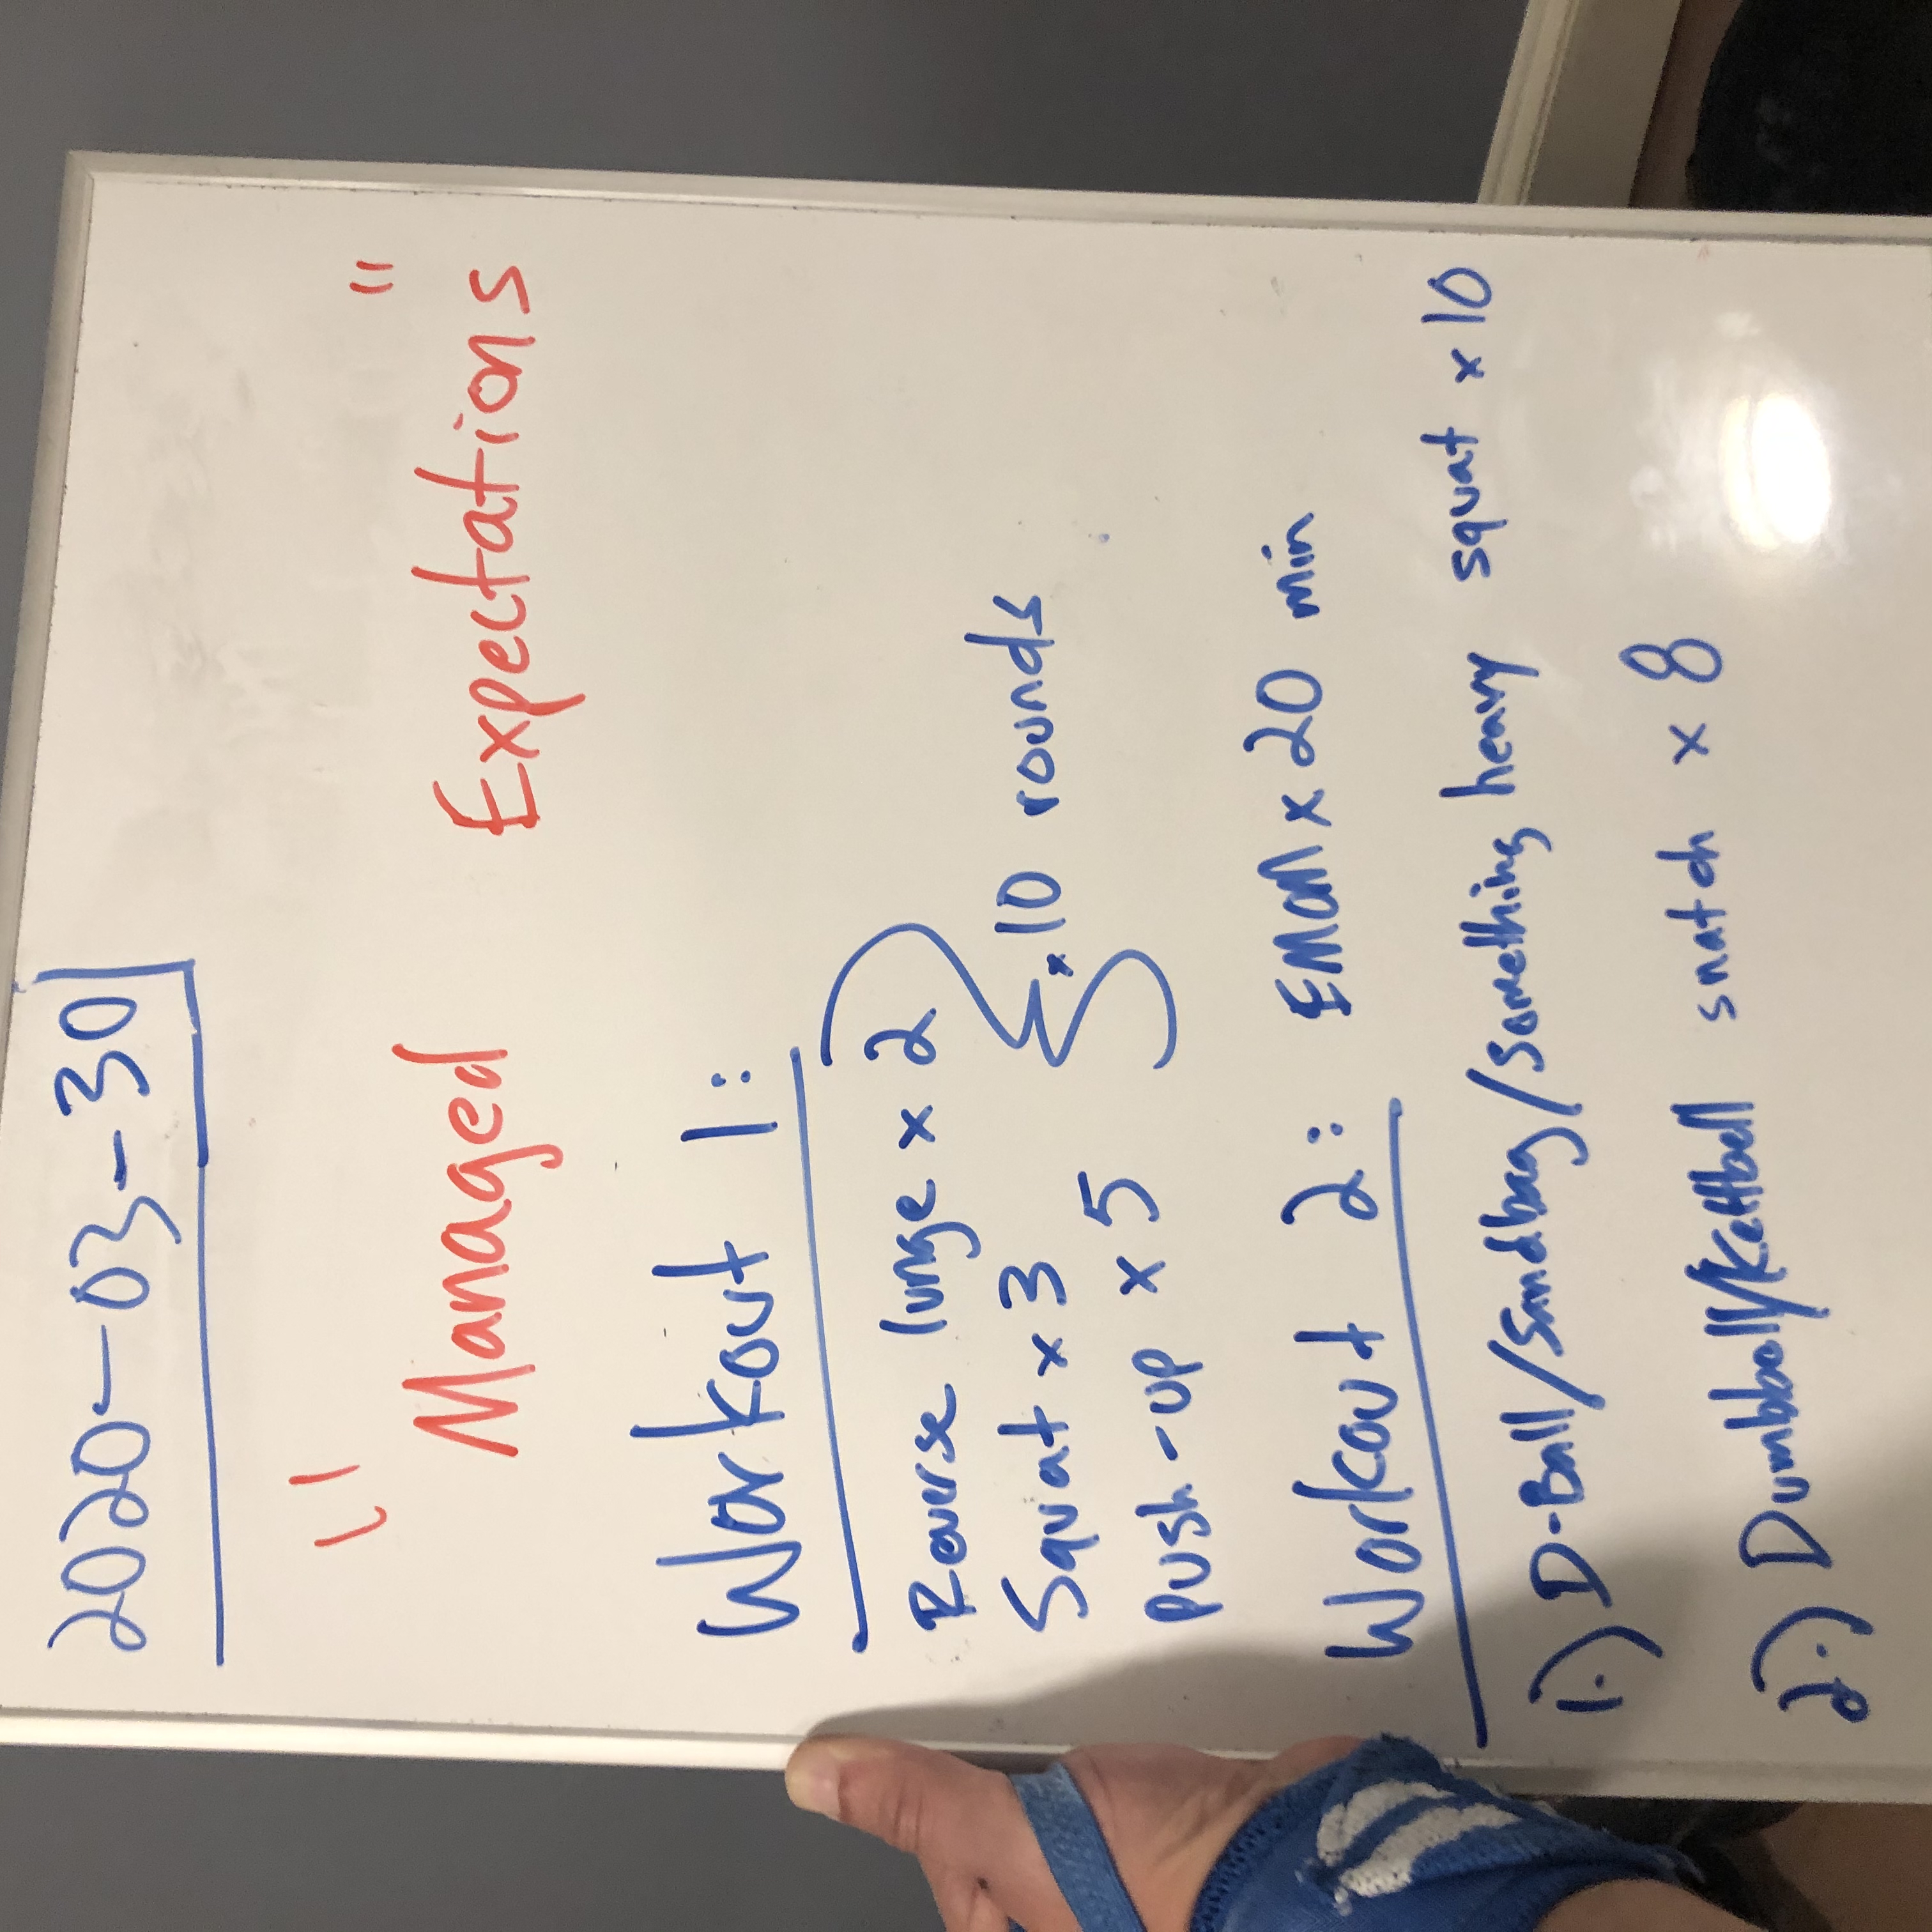 2020-03-30
"Managed Expectations"
Workout 1:
Reverse lunge x 2
Squat x 3
Push-up x 5
x 10 rounds
Workout 2: EMOM x 20 min
1.) D-Ball/Sandbag/Something heavy squat x 10
2.) Dumbbell/Kettbell snatch x 8